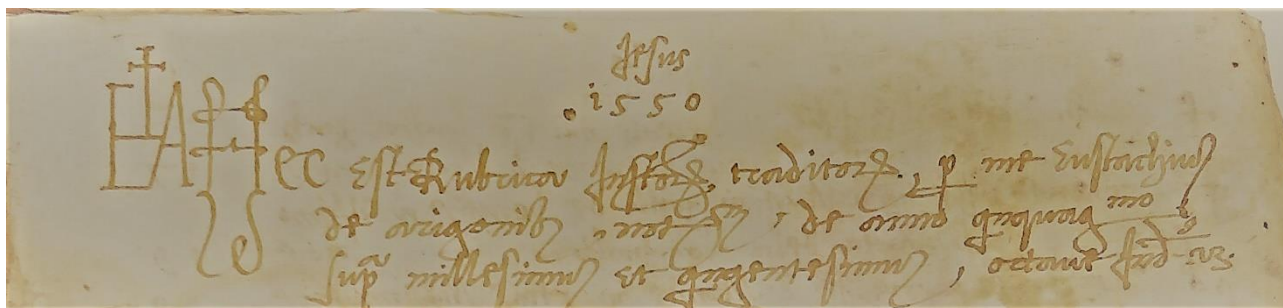 Jesus
1550
Haec est Rubrica Instor[um] traditor[um], p[er] me Eustachiu[m]
de arigonib[us], not, de anno q[ui]nquag mo
supra millesimu[m] et q[ui]ngentesimu[m], octave Ind